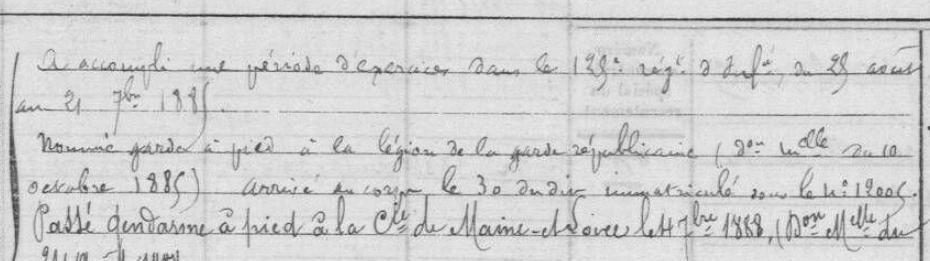 A accompli une période d'exercices dans le 125e régt d'Infie, du 25 août
au 21 7bre 1885.
Nommé garde à pied à la légion de la garde républicaine (Don Mlle du 10
octobre 1885) arrivé au corps le 30 dudit immatriculé sous le no 12005.
Passé Gendarme à pied à la Cie de Maine-et-Loire le 7bre 1888, (Don Melle du